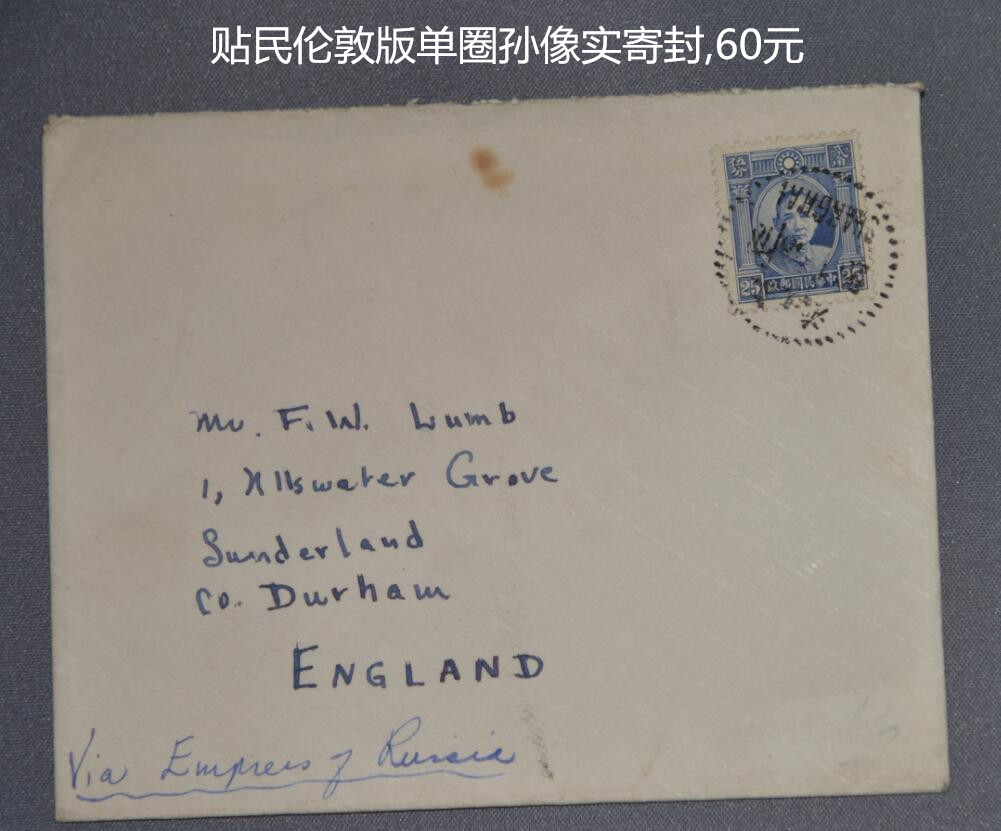 贴民伦敦版单圈孙像实寄封,60元
伍分 贰角
25 政郵國民華中 25
SHANGHAI
Mr. F. W. Lumb
1, Ullswater Grove
Sunderland
Co. Durham
ENGLAND
Via Empress of Russia